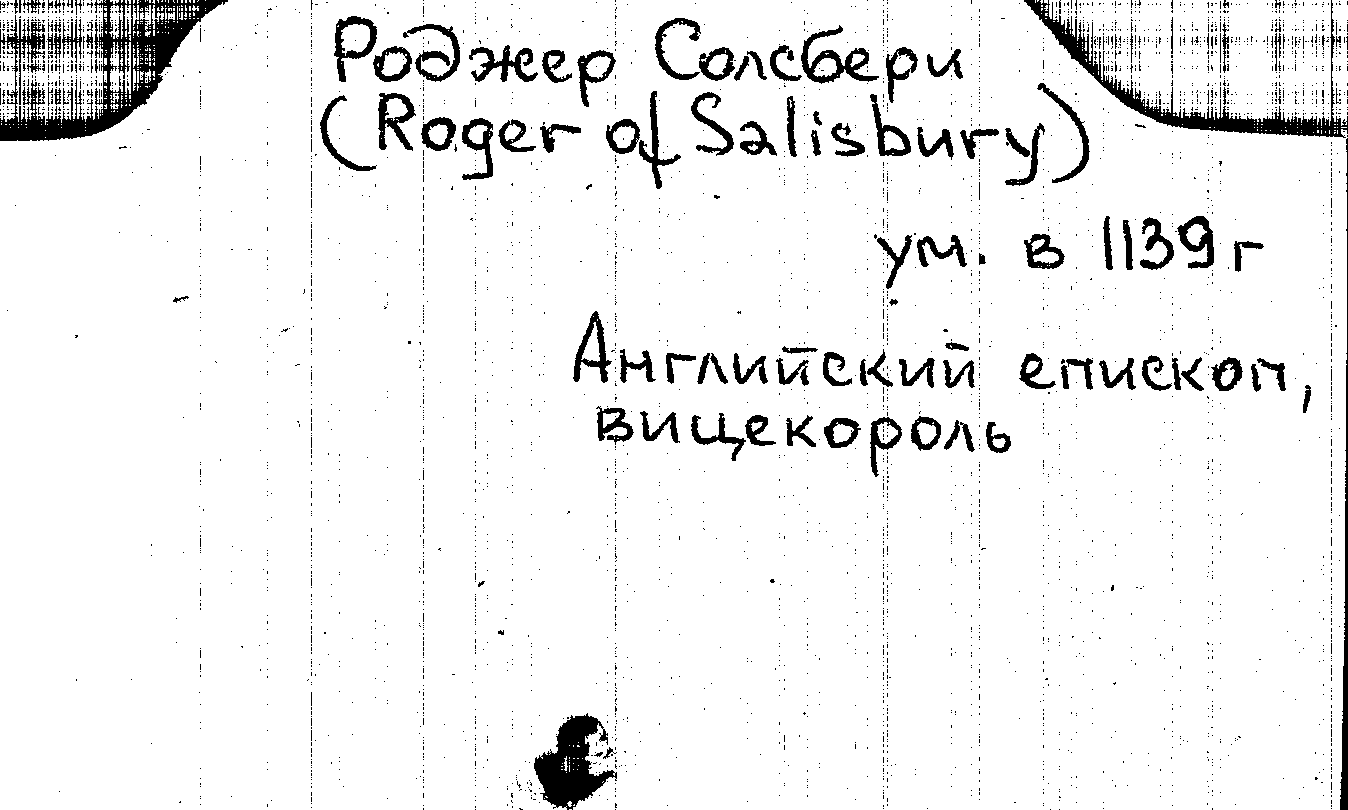 Роджер Солсбери
(Roger of Salisbury)
ум. в 1139 г
Английский епископ,
вицекороль